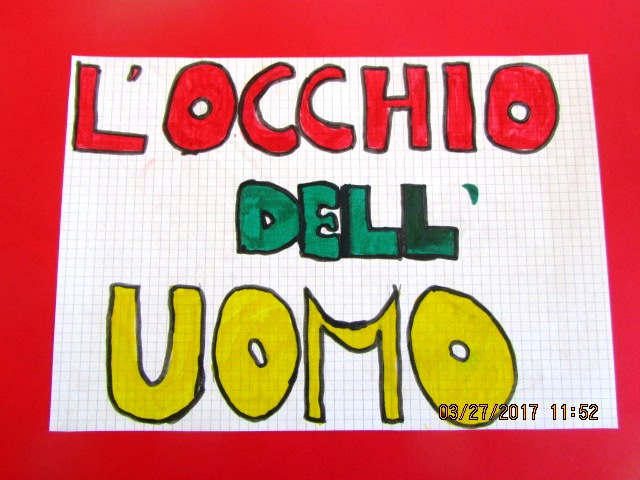 L'OCCHIO
DELL'
UOMO
03/27/2017 11:52